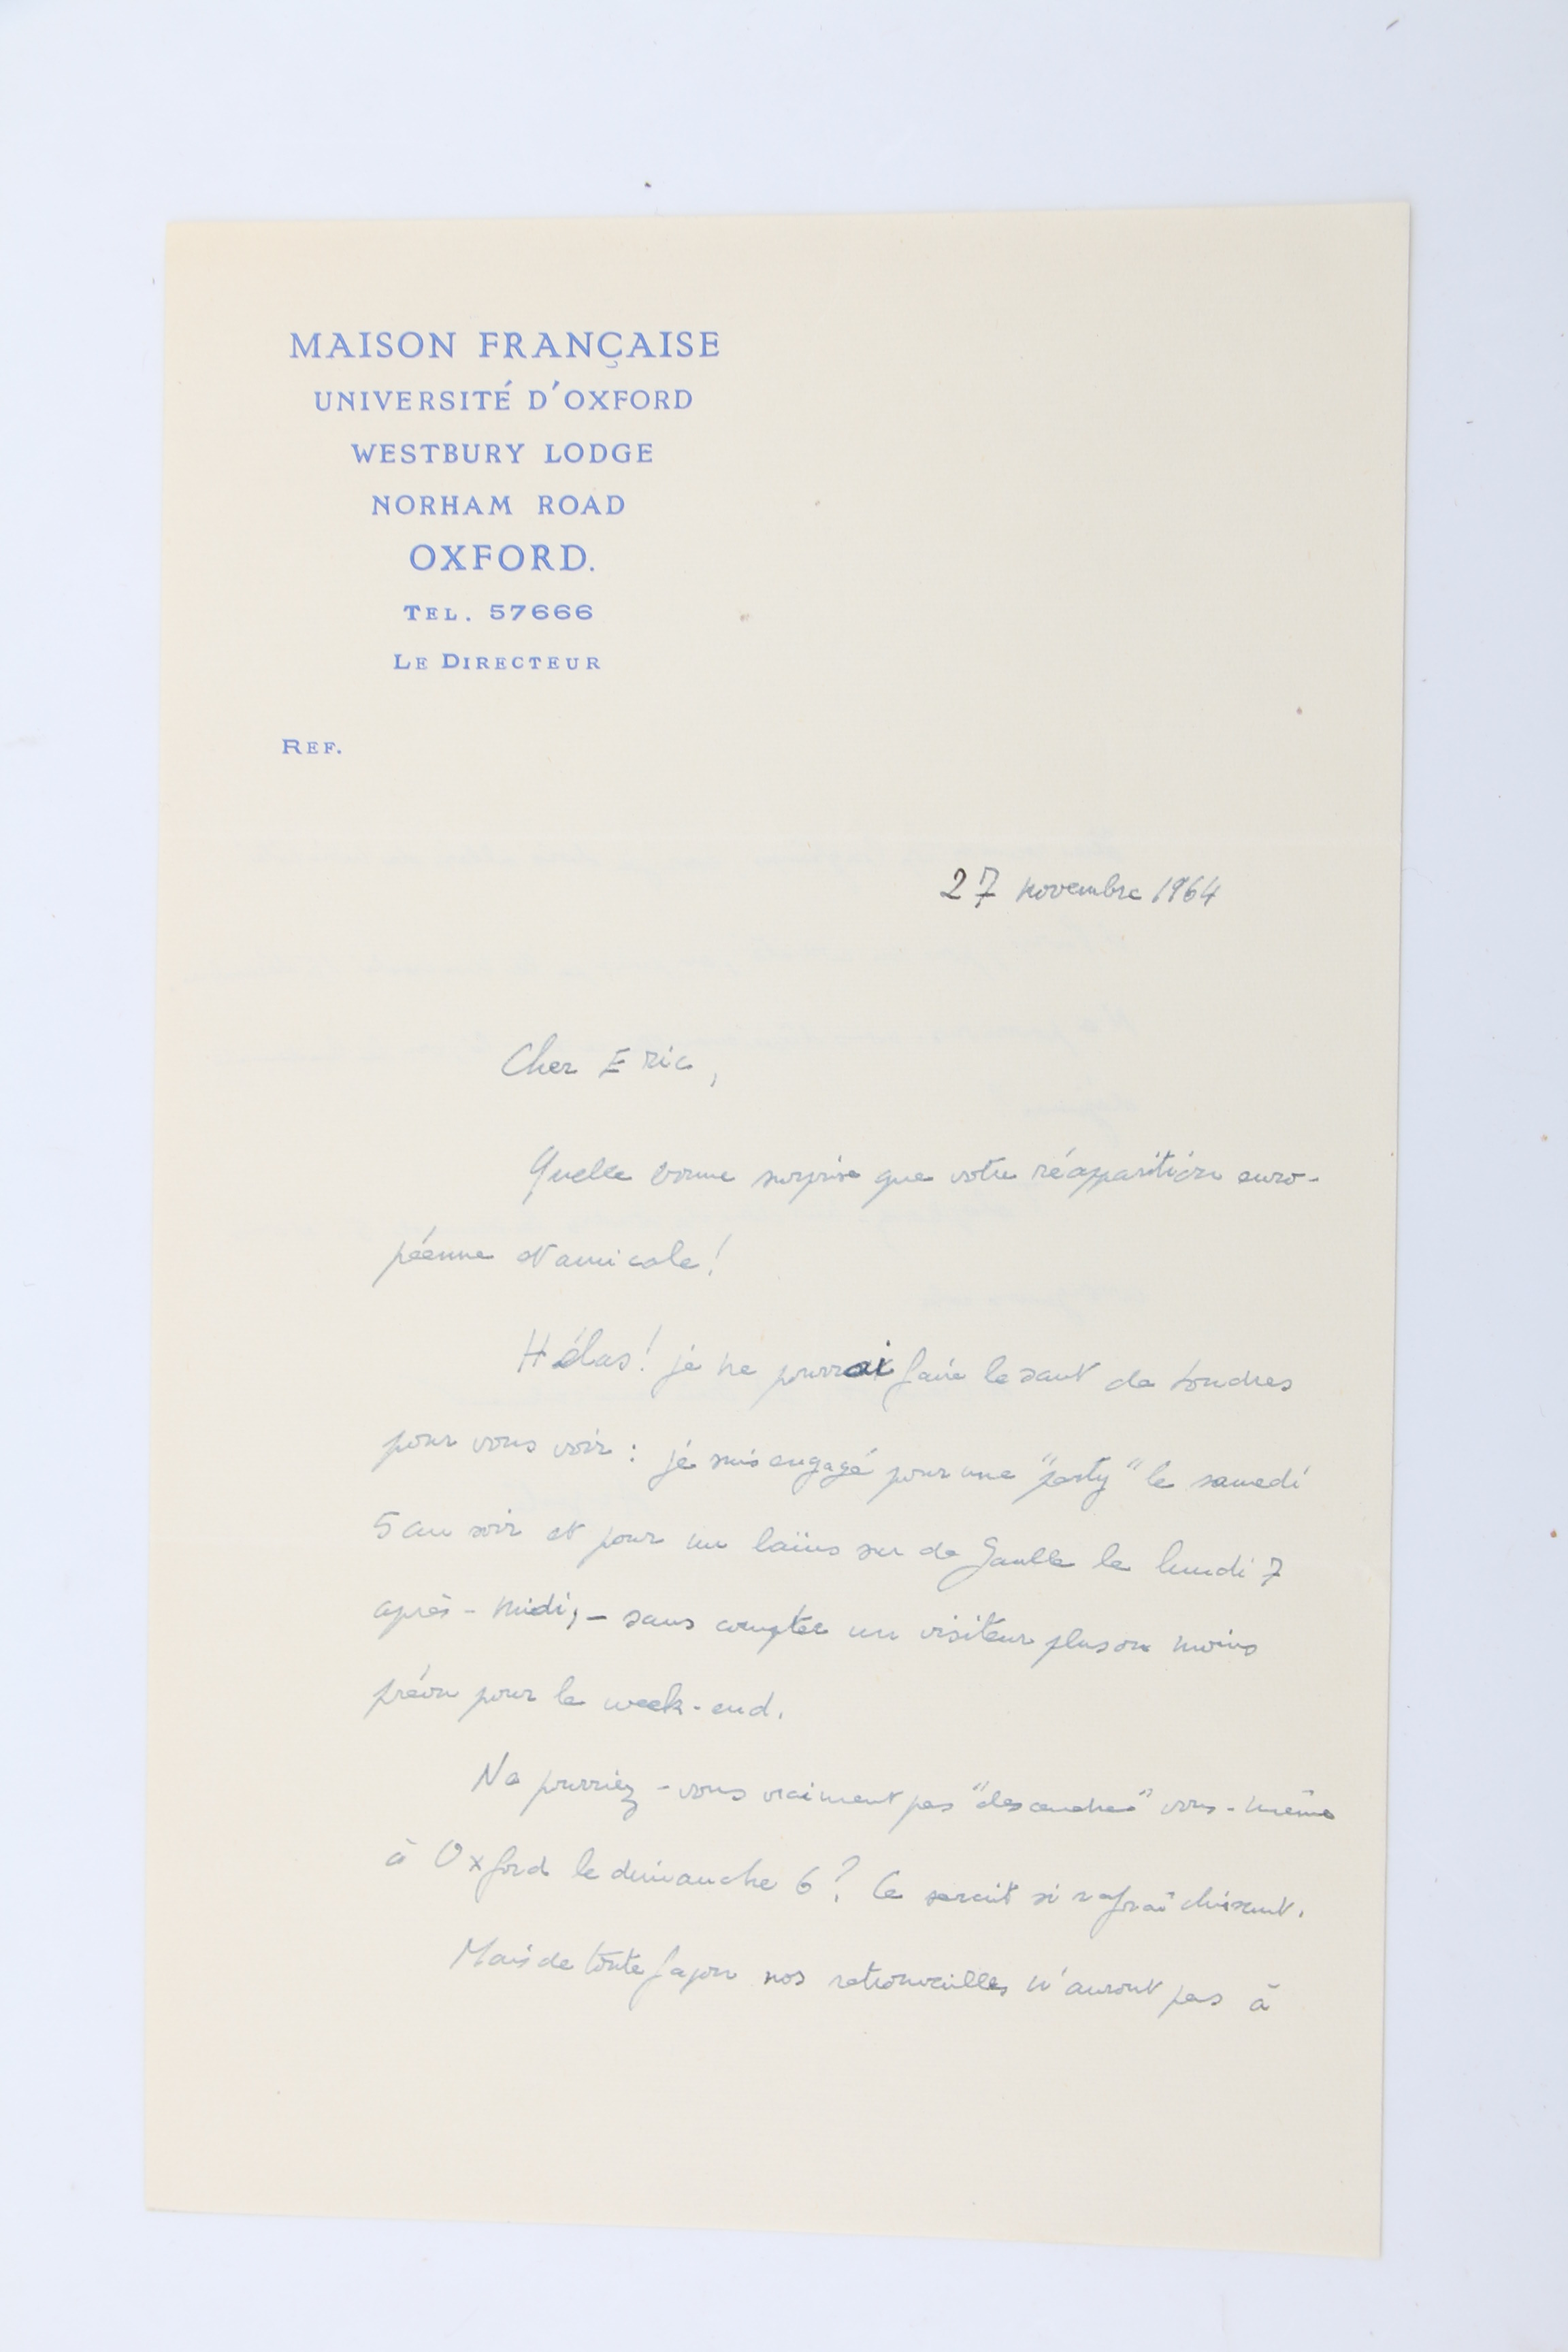 MAISON FRANÇAISE
UNIVERSITÉ D'OXFORD
WESTBURY LODGE
NORHAM ROAD
OXFORD.
TEL. 57666
LE DIRECTEUR
REF.
27 novembre 1964
Cher Eric,
Quelle bonne surprise que votre réapparition euro-
péenne et amicale!
Hélas! je ne pourrai faire le saut de Londres
pour vous voir : je suis engagé pour une "party" le samedi
5 au soir et pour un laïus sur de Gaulle le lundi 7
après-midi, - sans compter un visiteur plus ou moins
prévu pour le week-end.
Ne pourriez-vous vraiment pas "descendre" vous-même
à Oxford le dimanche 6? Ce serait si rafraîchissant.
Mais de toute façon nos retrouvailles n'auront pas à